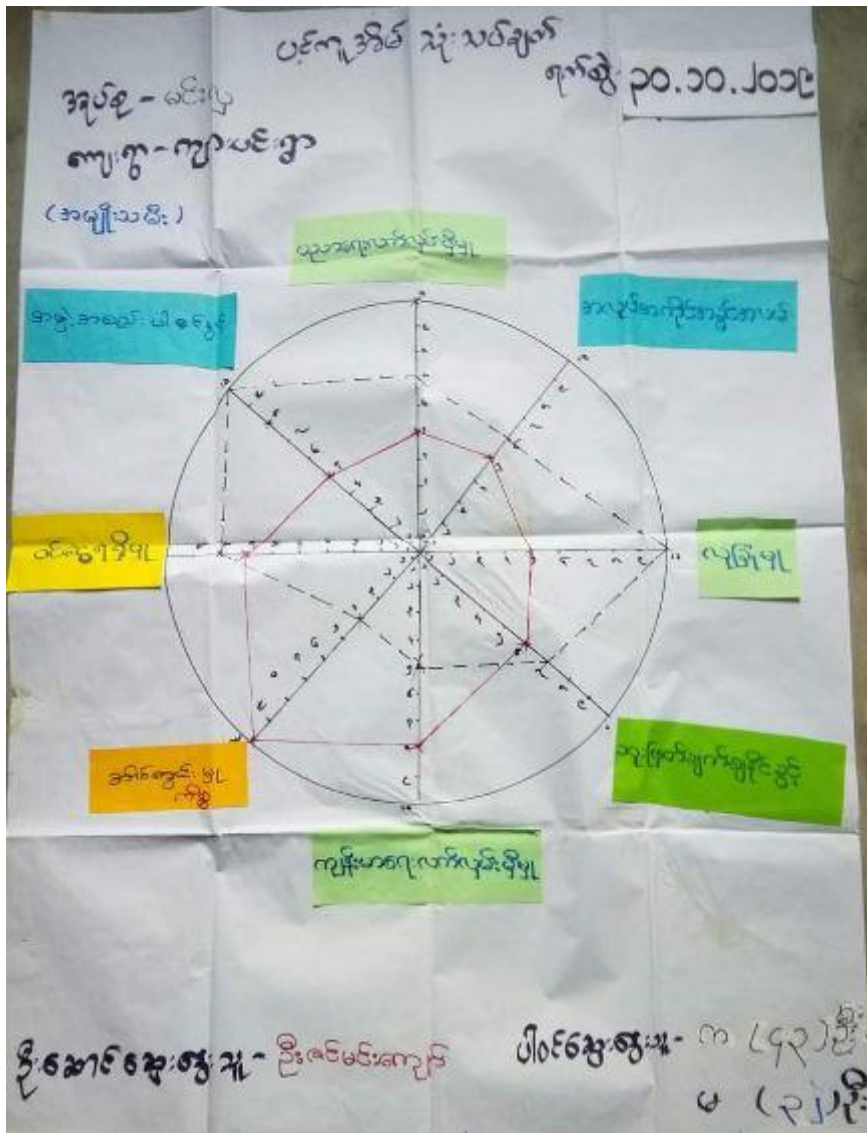 ပင့်ကူအိမ် သုံးသပ်ချက်
ရက်စွဲ ၃၀.၁၀.၂၀၁၉
အုပ်စု - မင်းလှ
ကျေးရွာ - ကျားမင်းရွာ
(အမျိုးသမီး)
ပညာရေးလက်လှမ်းမှီမှု
အဖွဲ့အစည်းပါဝင်ခွင့်
အလုပ်အကိုင်အခွင့်အလမ်
ဝင်ငွေရရှိမှု
လုံခြုံမှု
အိမ်တွင်းမှု
ကိစ္စ
ဆုံးဖြတ်ချက်ချနိုင်ခွင့်
ကျန်းမာရေးလက်လှမ်းမှီမှု
ဦးဆောင်ဆွေးနွေးသူ - ဦးဇင်မင်းကျော်
ပါဝင်ဆွေးနွေးသူ - က (၄၃) ဦး
မ (၃၂) ဦး